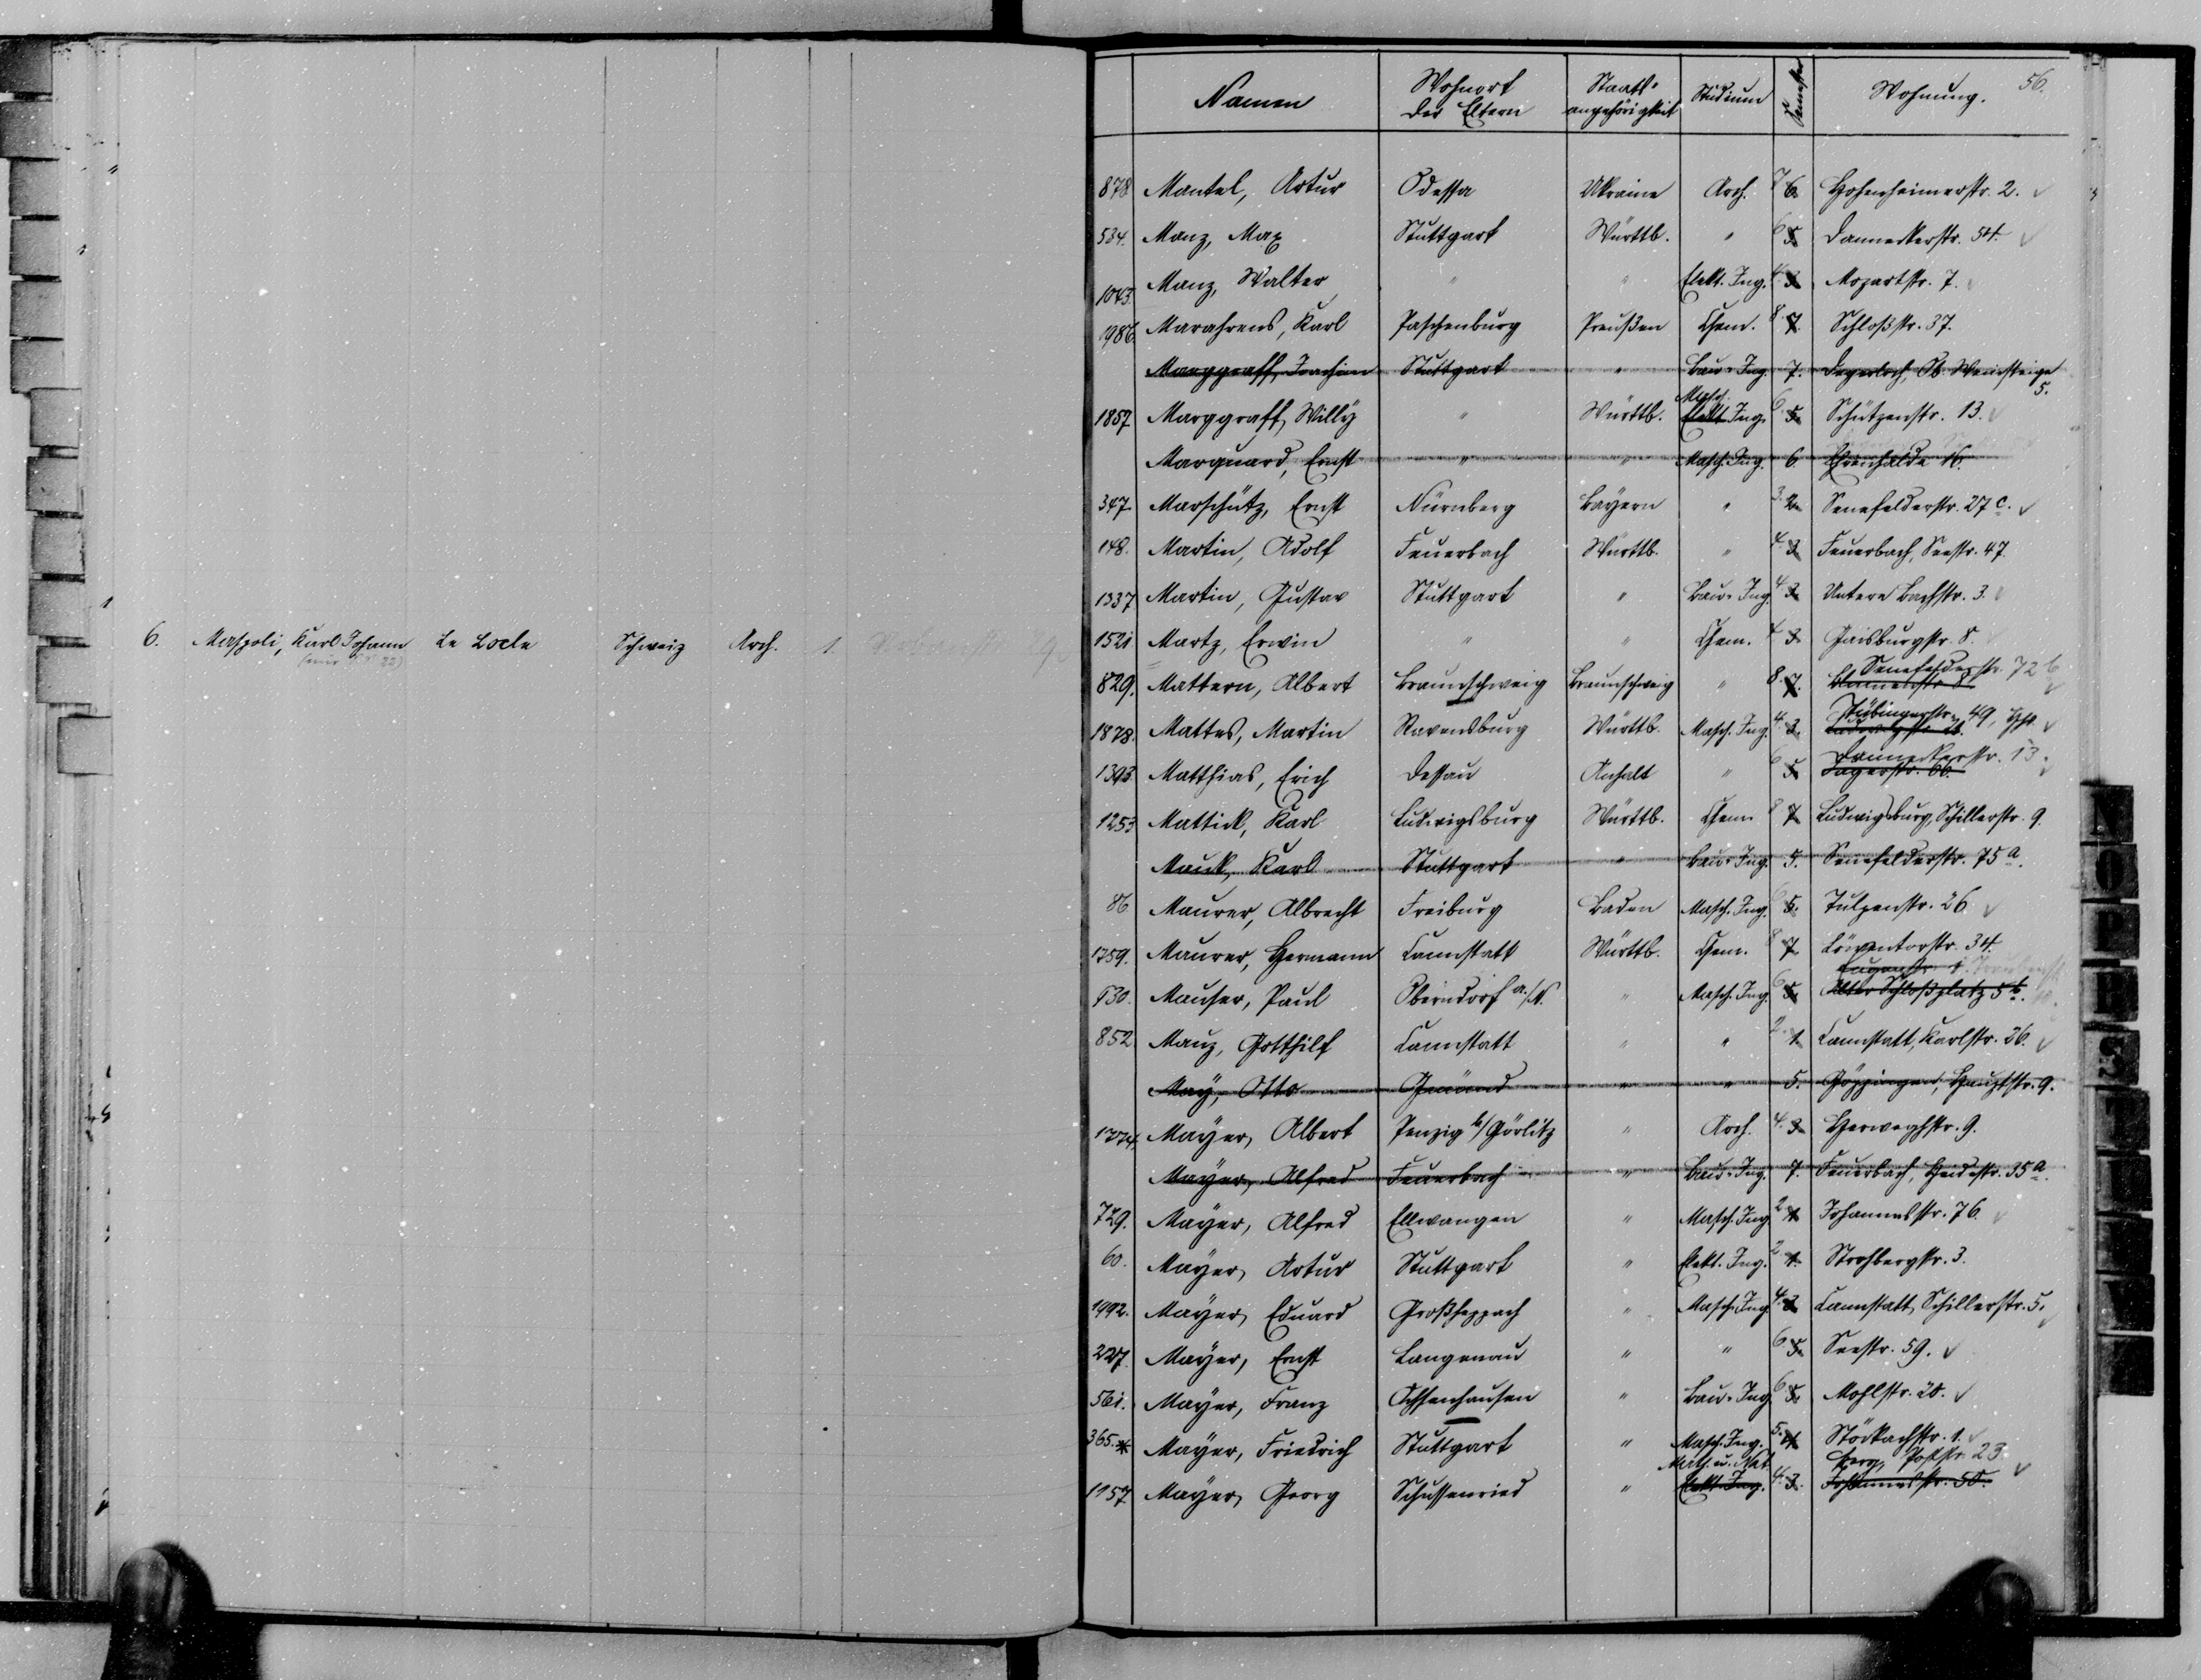 6. Maspoli, Karl Johann Le Locle Schweiz Arch. 1.
56.
Namen Wohnort der Eltern Staatsangehörigkeit Studium Semester Wohnung.
878 Mantel, Artur Odessa Ukraine Arch. 7 6. Hohenheimerstr. 2.
534. Manz, Max Stuttgart Württb. " 6 5. Danneckerstr. 54.
1043. Manz, Walter " " Elekt. Ing. 4. 3. Mozartstr. 7.
1986. Marahrens, Karl Paschenburg Preußen Chem. 8. 7. Schloßstr. 37.
Marggraff, Joachim Stuttgart " Bau-Ing. 7. Degerloch, Ob. Weinsteige 5.
1857 Marggraff, Willy " Württb. Masch. Elekt. Ing. 6. 5. Schützenstr. 13.
Marquard, Ernst " " Masch. Ing. 6. Ehrenhalde 16.
347 Marschütz, Ernst Nürnberg Bayern " 3. 2. Senefelderstr. 27 c.
148. Martin, Adolf Feuerbach Württb. " 4. 3. Feuerbach, Seestr. 47.
1337 Martin, Gustav Stuttgart " Bau-Ing. 4. 3. Untere Bachstr. 3.
1521 Martz, Erwin " " Chem. 4. 3. Gaisburgstr. 8.
829. Mattern, Albert Braunschweig Braunschweig " 8. 7. Blumenstr. 8 Senefelderstr. 72 b
1878. Mattes, Martin Ravensburg Württb. Masch. Ing. 4. 3. Tübingerstr. 49,
1393 Matthias, Erich Dessau Anhalt " 6 5. Jägerstr. 66. Danneckerstr. 13.
1253 Mattick, Karl Ludwigsburg Württb. Chem. 8 7. Ludwigsburg, Schillerstr. 9.
Mauk, Karl Stuttgart " Bau-Ing. 5. Senefelderstr. 75 a.
86 Maurer, Albrecht Freiburg Baden Masch. Ing. 6 5. Tulpenstr. 26.
1759. Maurer, Hermann Cannstatt Württb. Chem. 8 7. Löwentorstr. 34.
930. Mauser, Paul Oberndorf a./N. " Masch. Ing. 6 5. Alter Schloßplatz 5 b.
852 Mauz, Gotthilf Cannstatt " " 2. 1. Cannstatt, Karlstr. 36.
May, Otto Gmünd " " 5. Göppingen, Hauptstr. 9.
1774. Mayer, Albert Penzig b/Görlitz " Arch. 4. 3. Herweghstr. 9.
Mayer, Alfred Feuerbach " Bau-Ing. 7. Feuerbach, Heidestr. 35 a.
729. Mayer, Alfred Ellwangen " Masch. Ing. 2. 1. Johannesstr. 76.
60. Mayer, Artur Stuttgart " Elekt. Ing. 2 1. Strohbergstr. 3.
1992. Mayer, Eduard Großheppach " Masch. Ing. 4. 3. Cannstatt, Schillerstr. 5.
227. Mayer, Ernst Langenau " " 6 5. Seestr. 59.
561. Mayer, Franz Ochsenhausen " Bau-Ing. 6 5. Mohlstr. 28.
365.* Mayer, Friedrich Stuttgart " Masch. Ing. 5. 4. Stöckachstr. 1.
1157 Mayer, Georg Schussenried " Math. u. Nat. Elekt. Ing. 4. 3. Johannesstr. 50. Berg, Poststr. 23.
N
O
P
R
S